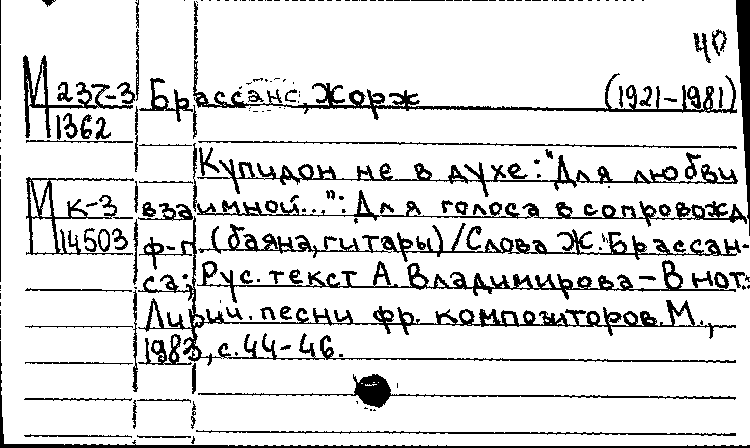 40
М 237-3 Брассанс, Жорж (1921-1981)
1362
Купидон не в духе: "Для любви
М к-3 взаимной...": Для голоса в сопровожд.
14503 ф-п. (баяна, гитары)/Слова Ж. Брассан-
са; Рус. текст А. Владимирова - В нот.:
Лирич. песни фр. композиторов. М.,
1983, с. 44-46.